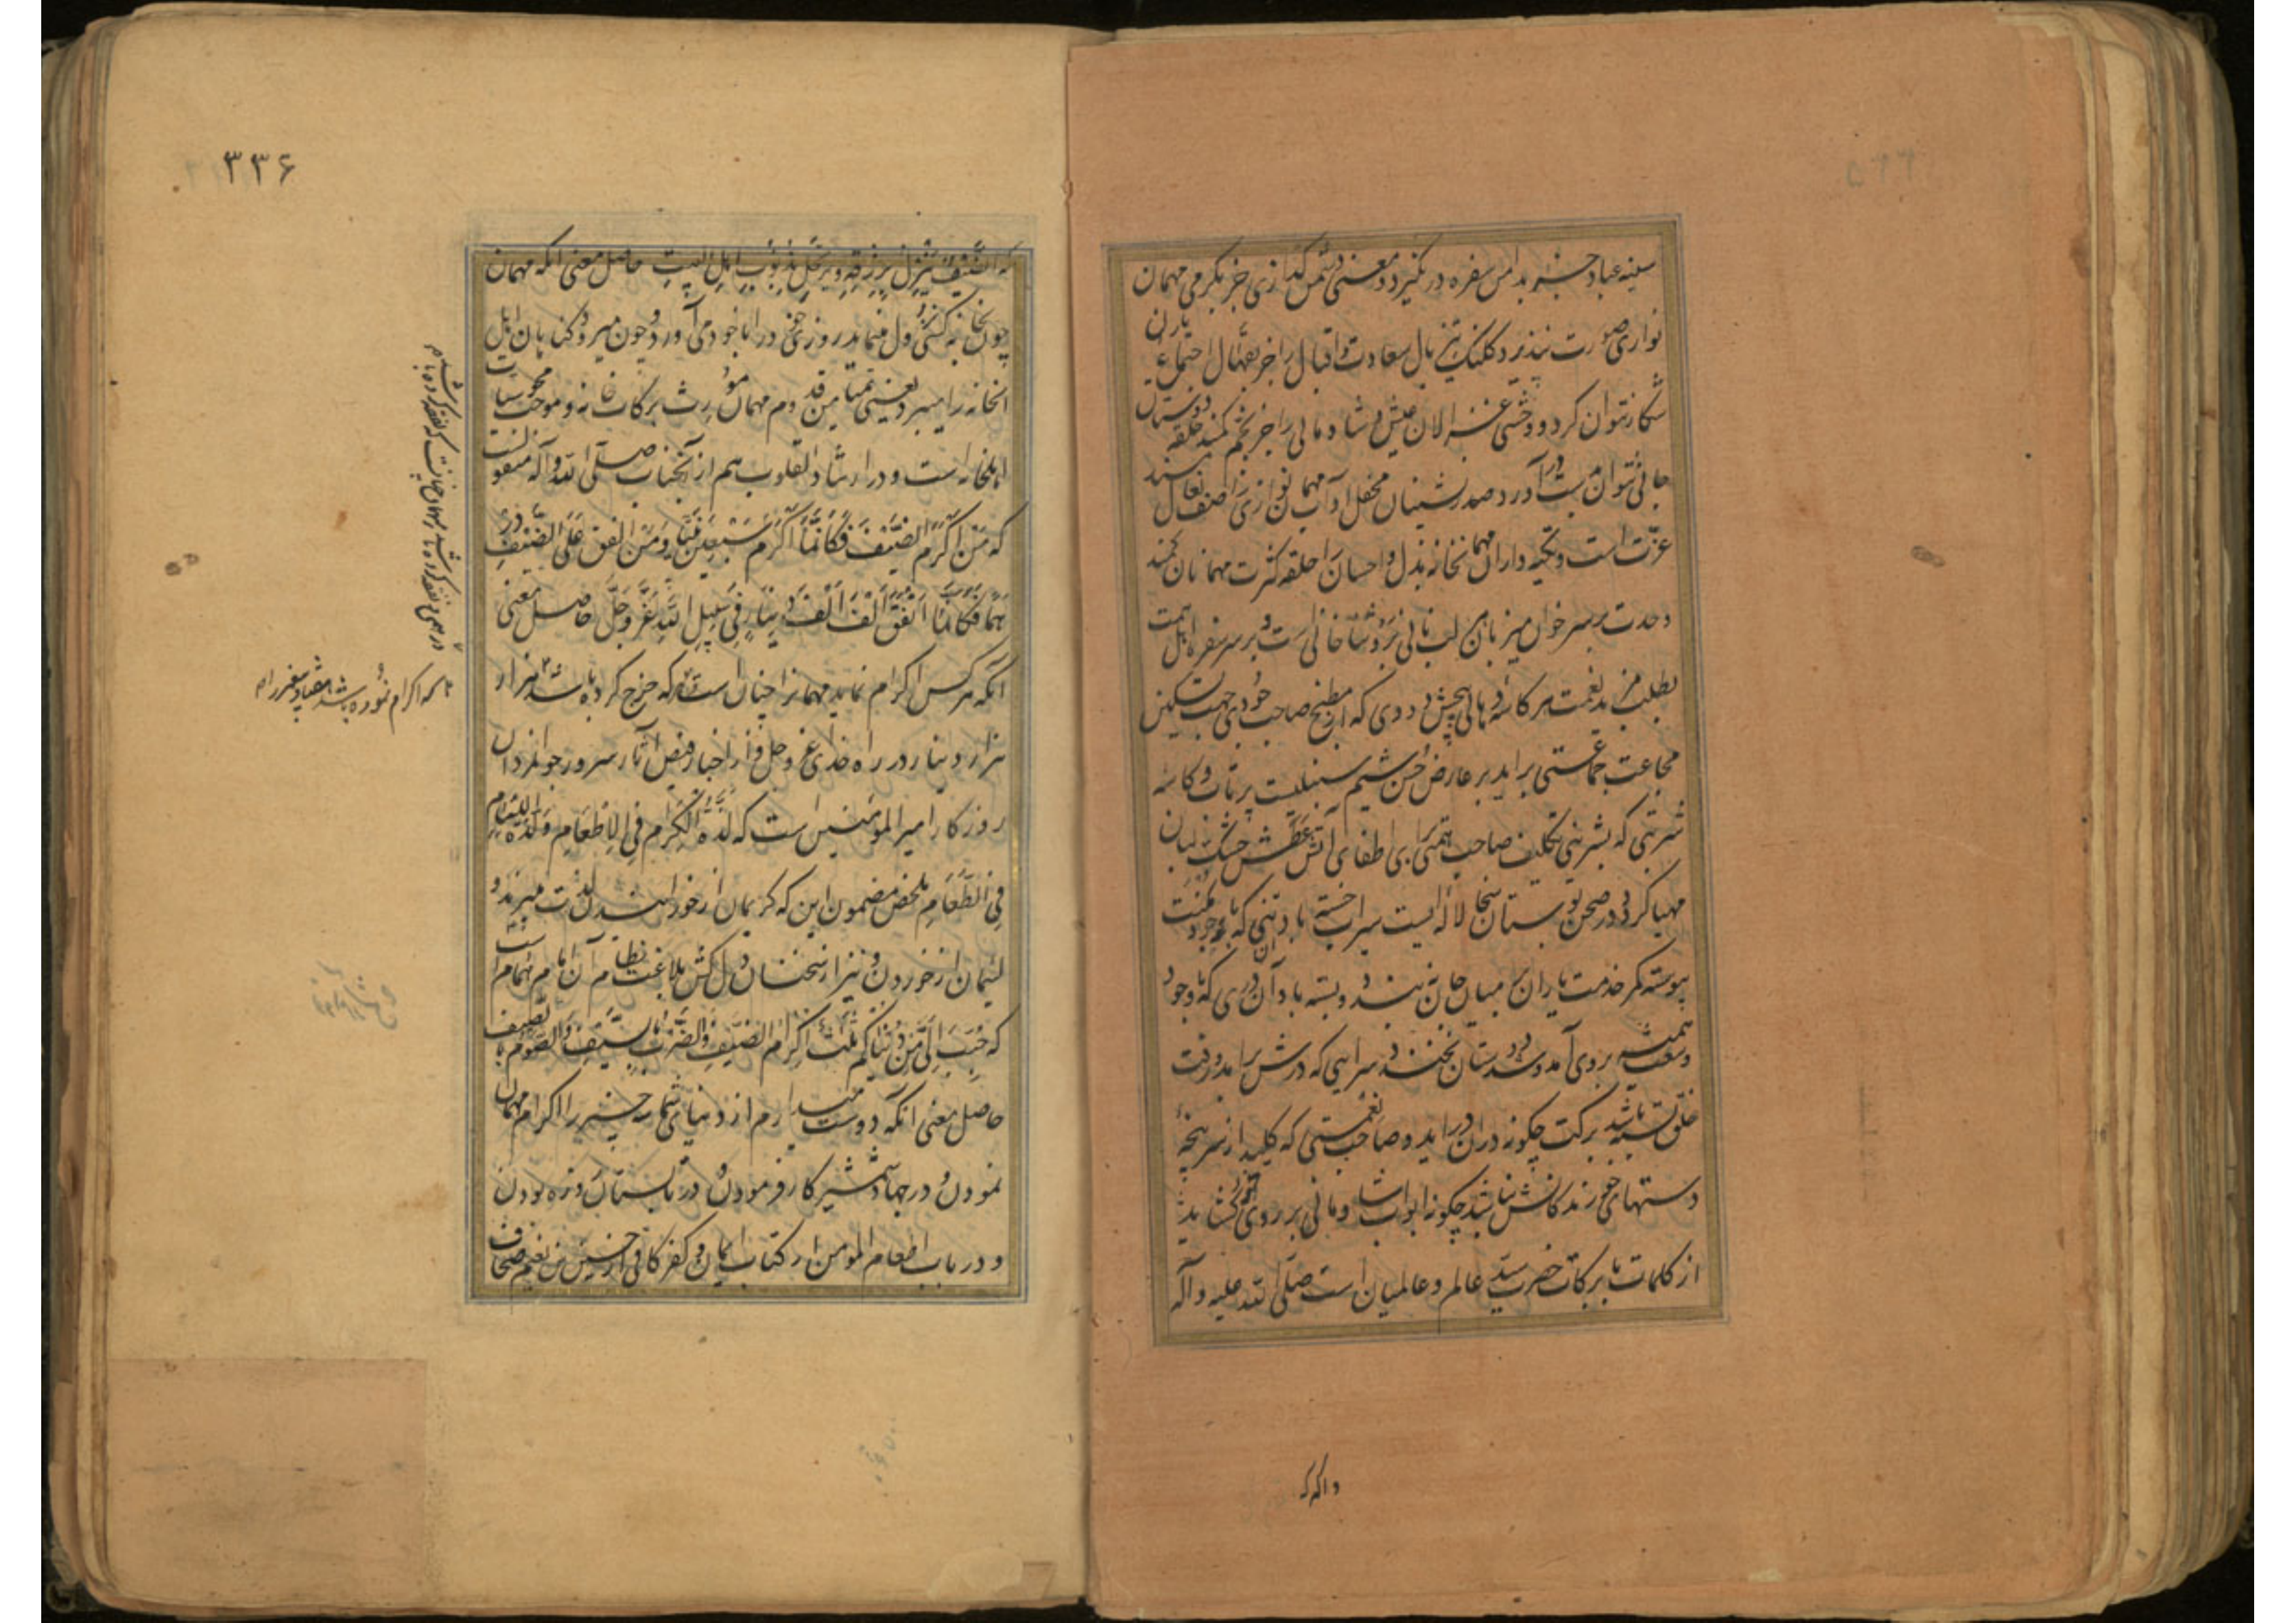 سینه عباد جز بدامن سفره درنگیرد و معنی دشمن گدازی جز بگرمی مهمان
نوازی صورت نپذیرد کلنک تیز بال سعادت و اقبال را جز بچنگال اجتماع یاران
شکار نتوان کرد و وحشی غزالان عیش و شادمانی را جز بخم کمند حلقه دوستان
جانی نتوان بدست آورد صدر نشینان محفل آداب مهمان نوازی را صف نعال مسند
عزت است و تکیه داران مهمانخانه بذل و احسان را حلقه کثرت مهمانان کمند
وحدت بر سر خوان میزبان لب نانی نزد شاخانی است و بر سر سفره اهل همت
بطلب مزید نعمت هر کاسه دهانی پیچش دودی که از مطبخ صاحب جودی جهت تسکین
مجاعت جماعتی براید بر عارض حسن شیم سنبلیست پرتاب و کاسه
شربتی که بشیرینی تکلیف صاحب همتی برای اطفای آتش عطش خشک لبان
مهیا گردد در صحن بوستان سخا لاله ایست سیراب خسته باد تنی که با وجود مکنت
پیوسته کمر خدمت یاران بمیان جان نه بندد و بسته باد آن دری که با وجود
وسعت همیشه بروی آمد و شد دوستان نخندد سرایی که درش برامد و رفت
خلق بسته باشد برکت چگونه دران دراید و صاحب نعمتی که کلید از سرپنجه
دستهای خورندگانش نباشد چگونه ابواب شادمانی بر روی خود گشاید
از کلمات با برکات حضرت سید عالم و عالمیان است صلی الله علیه و آله
و اله که
۳۳۶
که الضیف ینزل برزقه ویرتحل بذنوب اهل البیت حاصل معنی انکه مهمان
چون بخانه کسی نزول مینماید روزی خود را با خود می آورد و چون میرود گناهان اهل
انخانه را میبرد یعنی میامن قدوم مهمان مورث برکات خانه و موجب محو سیئات
اهلخانه است و در ارشاد القلوب هم از آنجناب صلی الله و آله منقول است
که من اکرم الضیف فکانما اکرم سبعین نبیا ومن انفق علی الضیف در
هما فکانما انفق الف الف دینار فی سبیل الله عز وجل حاصل معنی
آنکه هر کس اکرام نماید مهمانرا چنان است که خرج کرده باشد هزار
هزار دینار در راه خدای عز و جل و از اخبار فیض آثار سرور جوانمردان
روزگار امیرالمؤمنین است که لذة الکرام فی الاطعام ولذة اللئام
فی الطعام ملخص مضمون این که کریمان از خورانیدن لذت میبرند و
لئیمان از خوردن و نیز از سخنان دلکش بلاغت نظام آن امام همام است
که حبب الی من دنیاکم ثلث اکرام الضیف والضرب بالسیف والصوم بالصیف
حاصل معنی انکه دوست میدارم از دنیای شما سه چیز را اکرام مهمان
نمودن و در جهاد شمشیر کار فرمودن و در تابستان روزه بودن
و در باب اطعام المومن از کتاب ایمان و کفر کافی از حسین بن نعیم صحاف
که اکرام نموده باشد هفتاد پیغمبر را